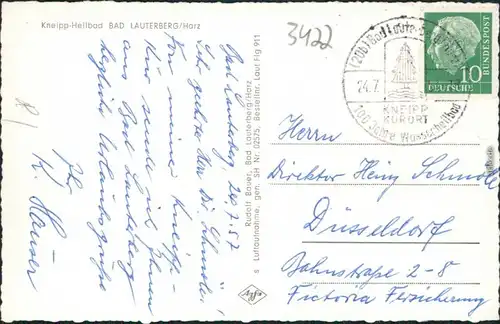 Kneipp-Heilbad BAD LAUTERBERG/Harz
3422
(20b) Bad Lauterberg
24.7.
KNEIPP
KURORT
100 Jahre Wasserheilbad
10
DEUTSCHE
Bad Lauterberg, 24.7.57
Sehr geehrter Herr Dr. Schmole!
Von meiner Kneipp-
Kur sende ich Ihnen
aus Bad Lauterberg
herzliche Urlaubsgrüße
Ihr
K. Häuser
Rudolf Bauer, Bad Lauterberg/Harz
s Luftaufnahme, gen. SH Nr. 02575, Bestellnr. Laut Flg 911
Herrn
Direktor Heinz Schmole
Düsseldorf
Bahnstraße 2-8
Victoria Versicherung